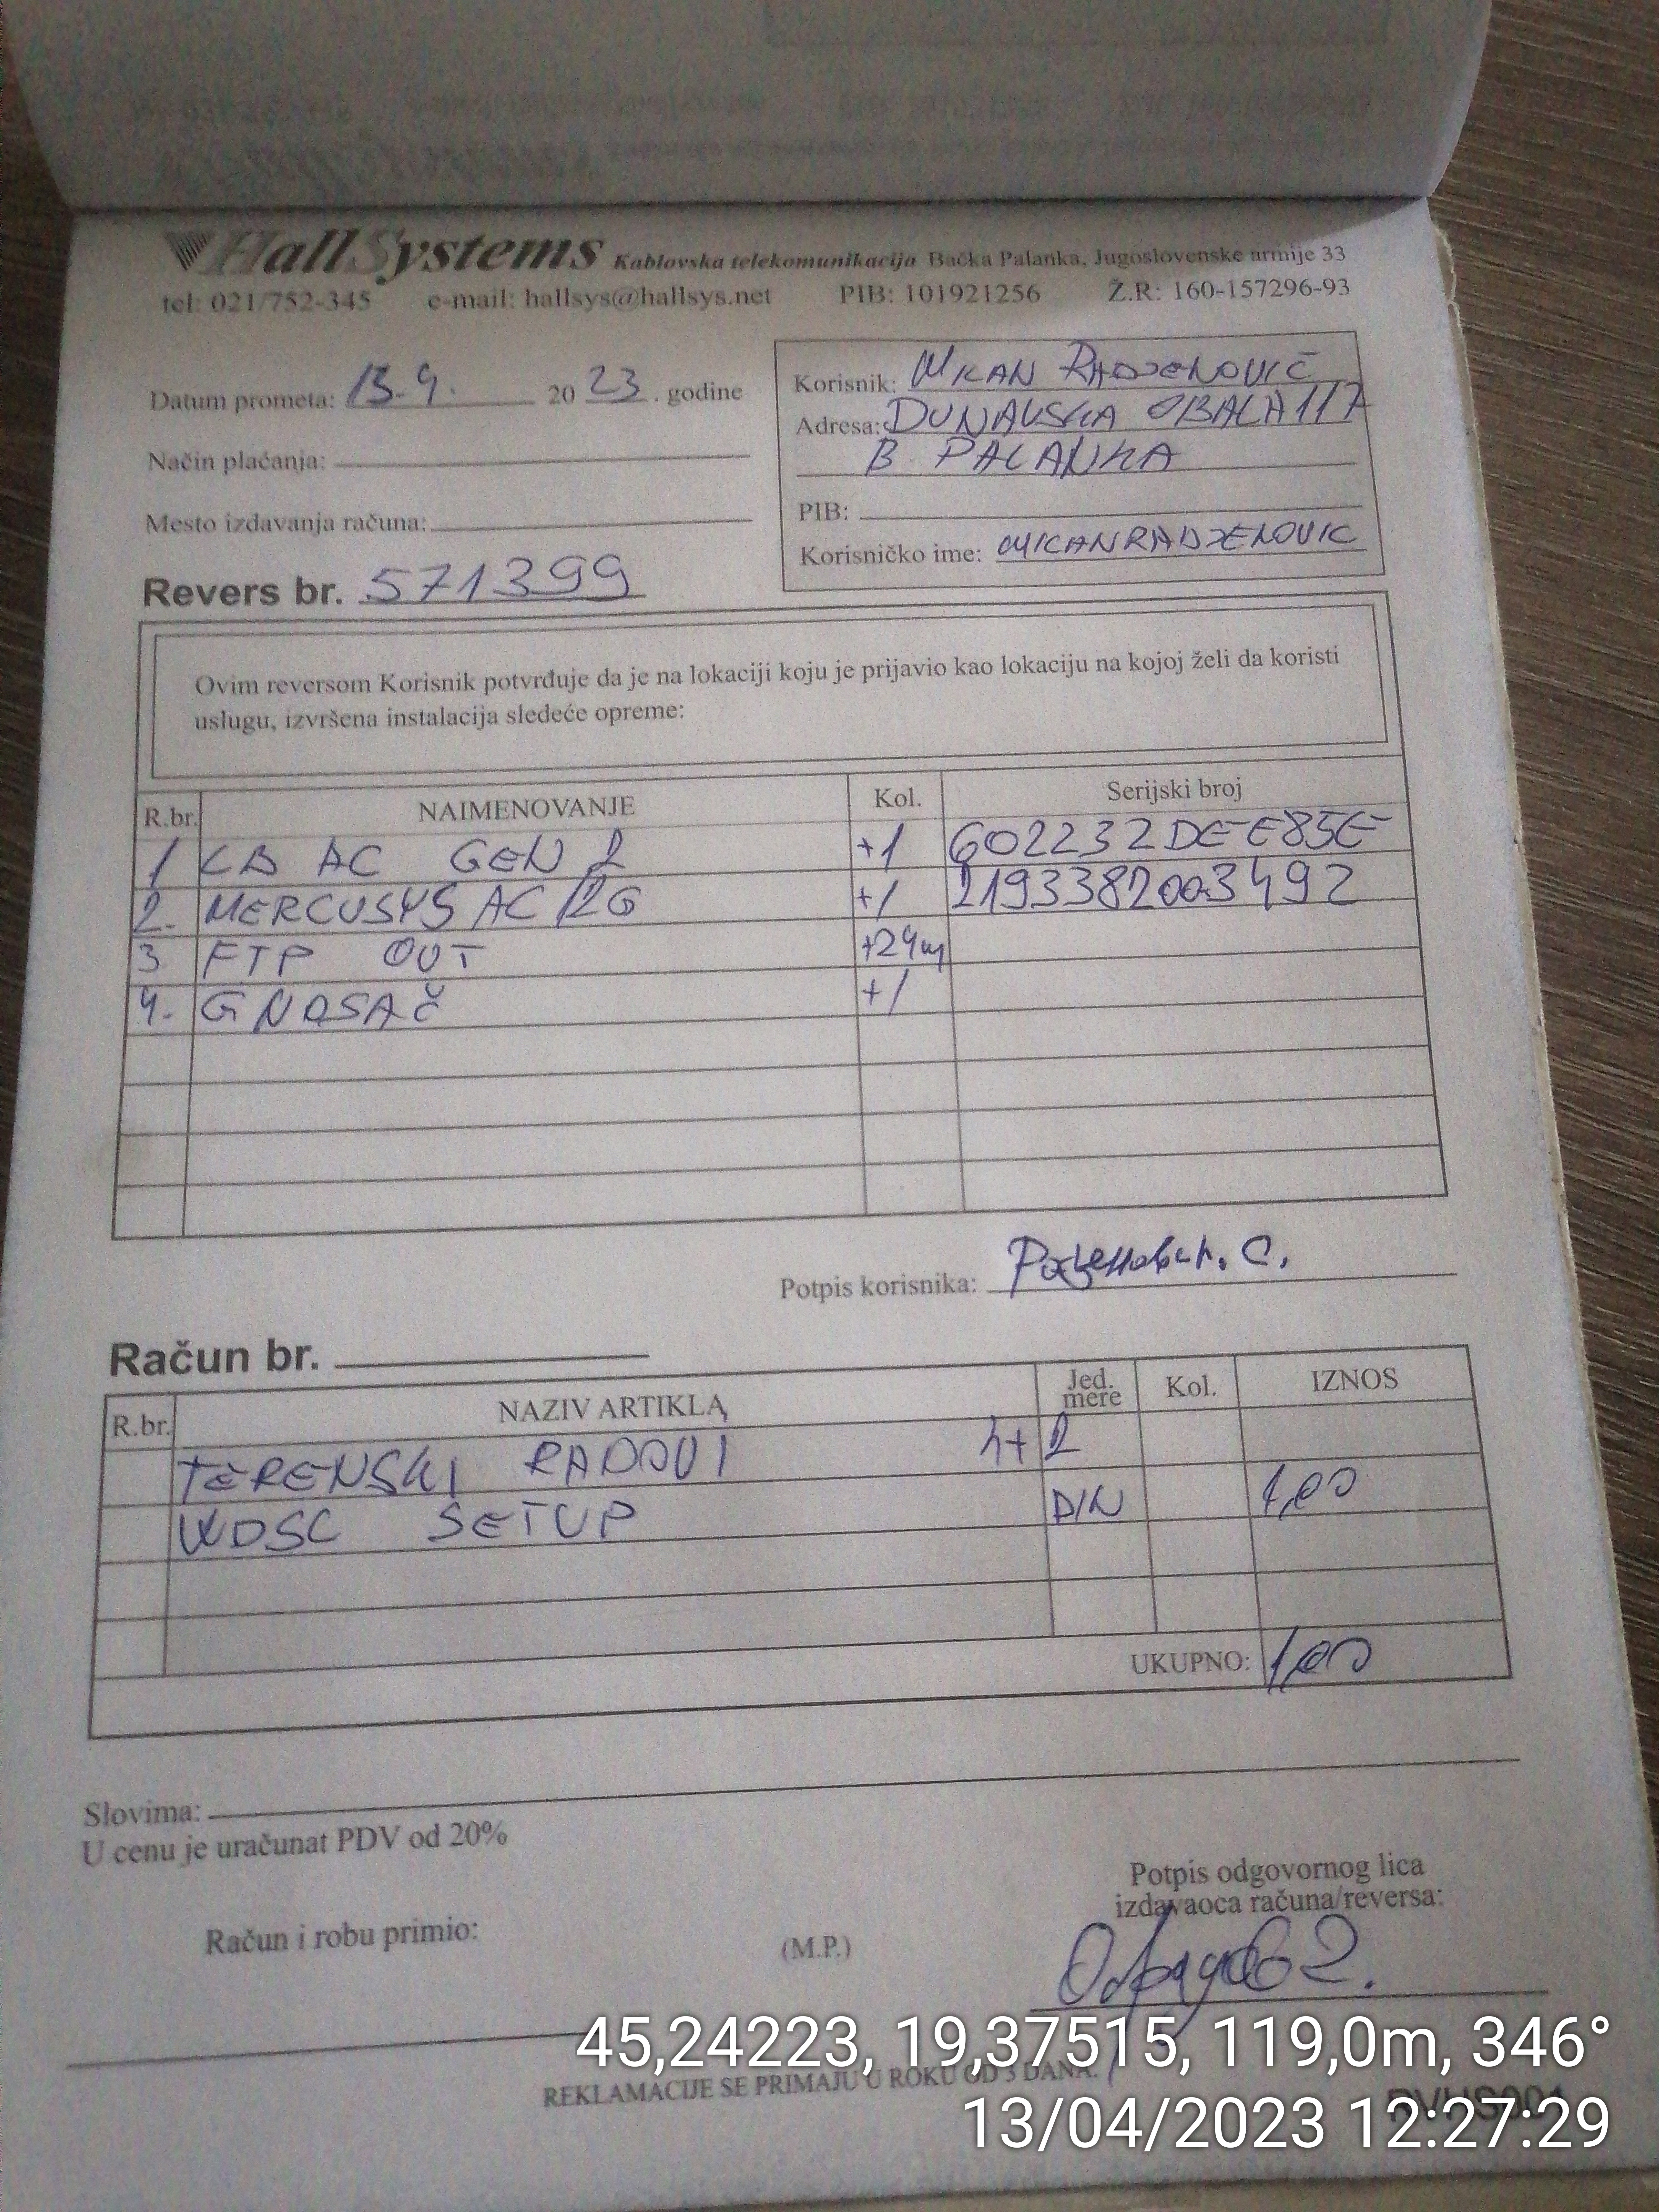 HallSystems Kablovska telekomunikacija Bačka Palanka, Jugoslovenske armije 33
tel: 021/752-345 e-mail: hallsys@hallsys.net PIB: 101921256 Ž.R: 160-157296-93
Datum prometa: 13.4. 2023. godine
Način plaćanja:
Mesto izdavanja računa:
Revers br. 571399
Korisnik: MIKAN RADJENOVIĆ
Adresa: DUNAVSKA OBALA 117A
B PALANKA
PIB:
Korisničko ime: MIKANRADJENOVIC
Ovim reversom Korisnik potvrđuje da je na lokaciji koju je prijavio kao lokaciju na kojoj želi da koristi
uslugu, izvršena instalacija sledeće opreme:
R.br. NAIMENOVANJE Kol. Serijski broj
1 LB AC GEN 2 +1 602232DEE85E
2. MERCUSYS AC12G +1 2193382003492
3 FTP OUT +24m
4. G NOSAČ +1
Potpis korisnika:
Račun br.
R.br. NAZIV ARTIKLA Jed. mere Kol. IZNOS
TERENSKI RADOVI h+2
WDSC SETUP DIN 1,00
UKUPNO: 1,00
Slovima:
U cenu je uračunat PDV od 20%
Potpis odgovornog lica
izdavaoca računa/reversa:
Račun i robu primio: (M.P.)
REKLAMACIJE SE PRIMAJU U ROKU OD 3 DANA.
45,24223, 19,37515, 119,0m, 346°
13/04/2023 12:27:29